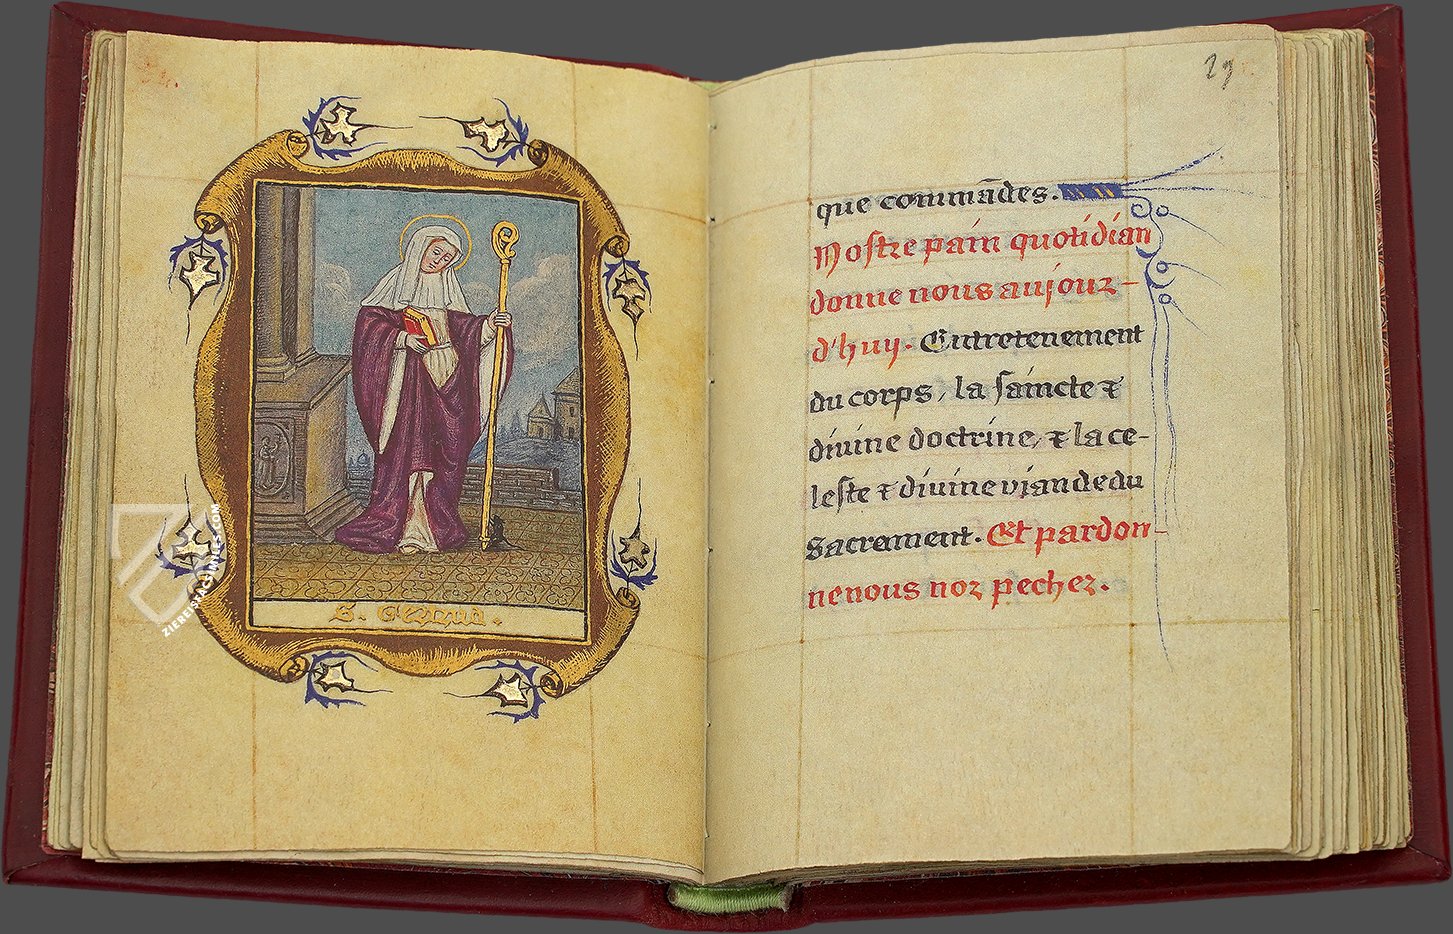 S. Gertrud.
ZIEREIS FACSIMILES.COM
27
que commādes.
Nostre pain quotidian
donne nous aujour-
d'huy. Entretenement
du corps, la saincte &
divine doctrine, & la ce-
leste & divine viande du
Sacrement. Et pardon-
ne nous noz pechez.